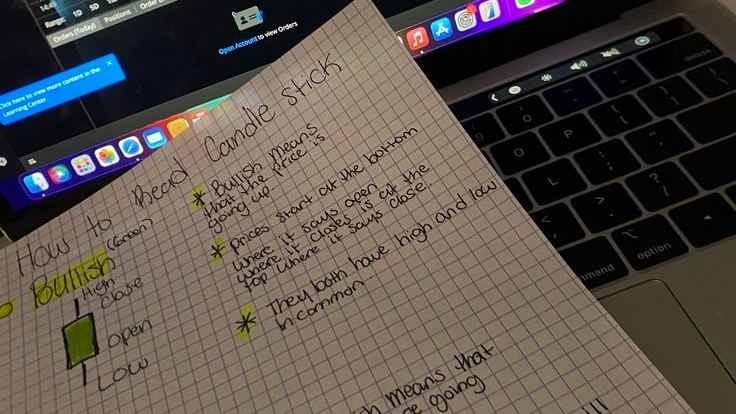 Range: 1D 5D
Orders (Today) Positions Order
Open Account to view Orders
Click here to view more content in the
Learning Center.
How to Read Candle stick
Bullish (Green)
High
Close
Open
Low
* Bullish means
that the price is
going up
* prices start at the bottom
where it says open
where it closes is at the
top where it says close.
* They both have high and low
in common
means that
going
O
P
L
command
option